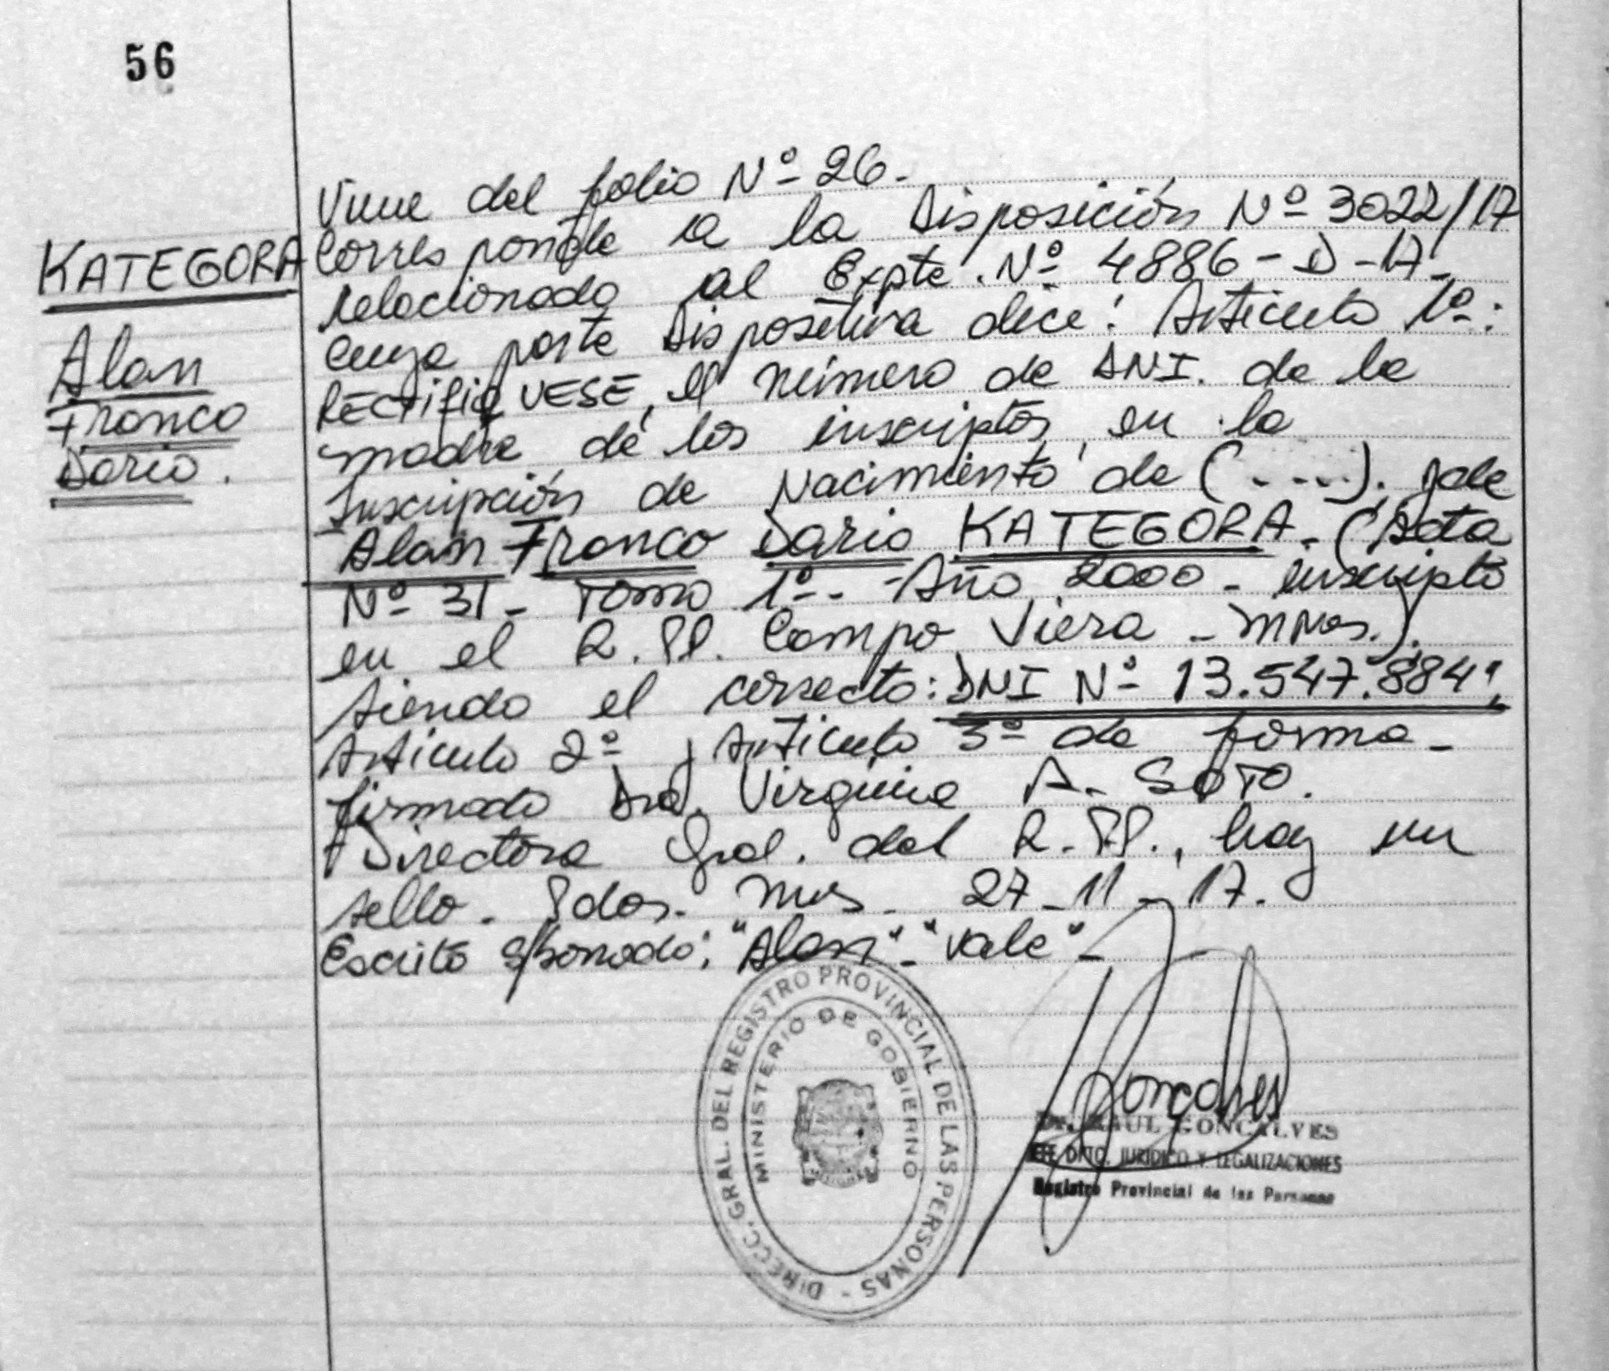 56
KATEGORA
Alan
Franco
Dario.
Viene del folio Nº 26.
Corresponde a la Disposición Nº 3022/17
relacionada al Expte. Nº 4886-D-17-
cuya parte Dispositiva dice: Artículo 1º:
RECTIFIQUESE, el número de DNI. de la
madre de los inscriptos, en la
Inscripción de Nacimiento de (....). y de
Alan Franco Dario KATEGORA. (Acta
Nº 31- Tomo 1º- Año 2000- inscripto
en el R.PP. Campo Viera - Mnes.).
siendo el correcto: DNI Nº 13.547.884".
Artículo 2º y Artículo 3º de forma-
firmado Dra. Virginia A. SOTO.
Directora Gral. del R.PP., hay un
sello. Pdas. Mnes. 27-11-17.
Escrito s/borrado: "Alan" "vale"-
DIRECC. GRAL. DEL REGISTRO PROVINCIAL DE LAS PERSONAS -
MINISTERIO DE GOBIERNO
Goncalves
Dr. RAUL GONCALVES
JEFE DPTO. JURIDICO Y LEGALIZACIONES
Registro Provincial de las Personas